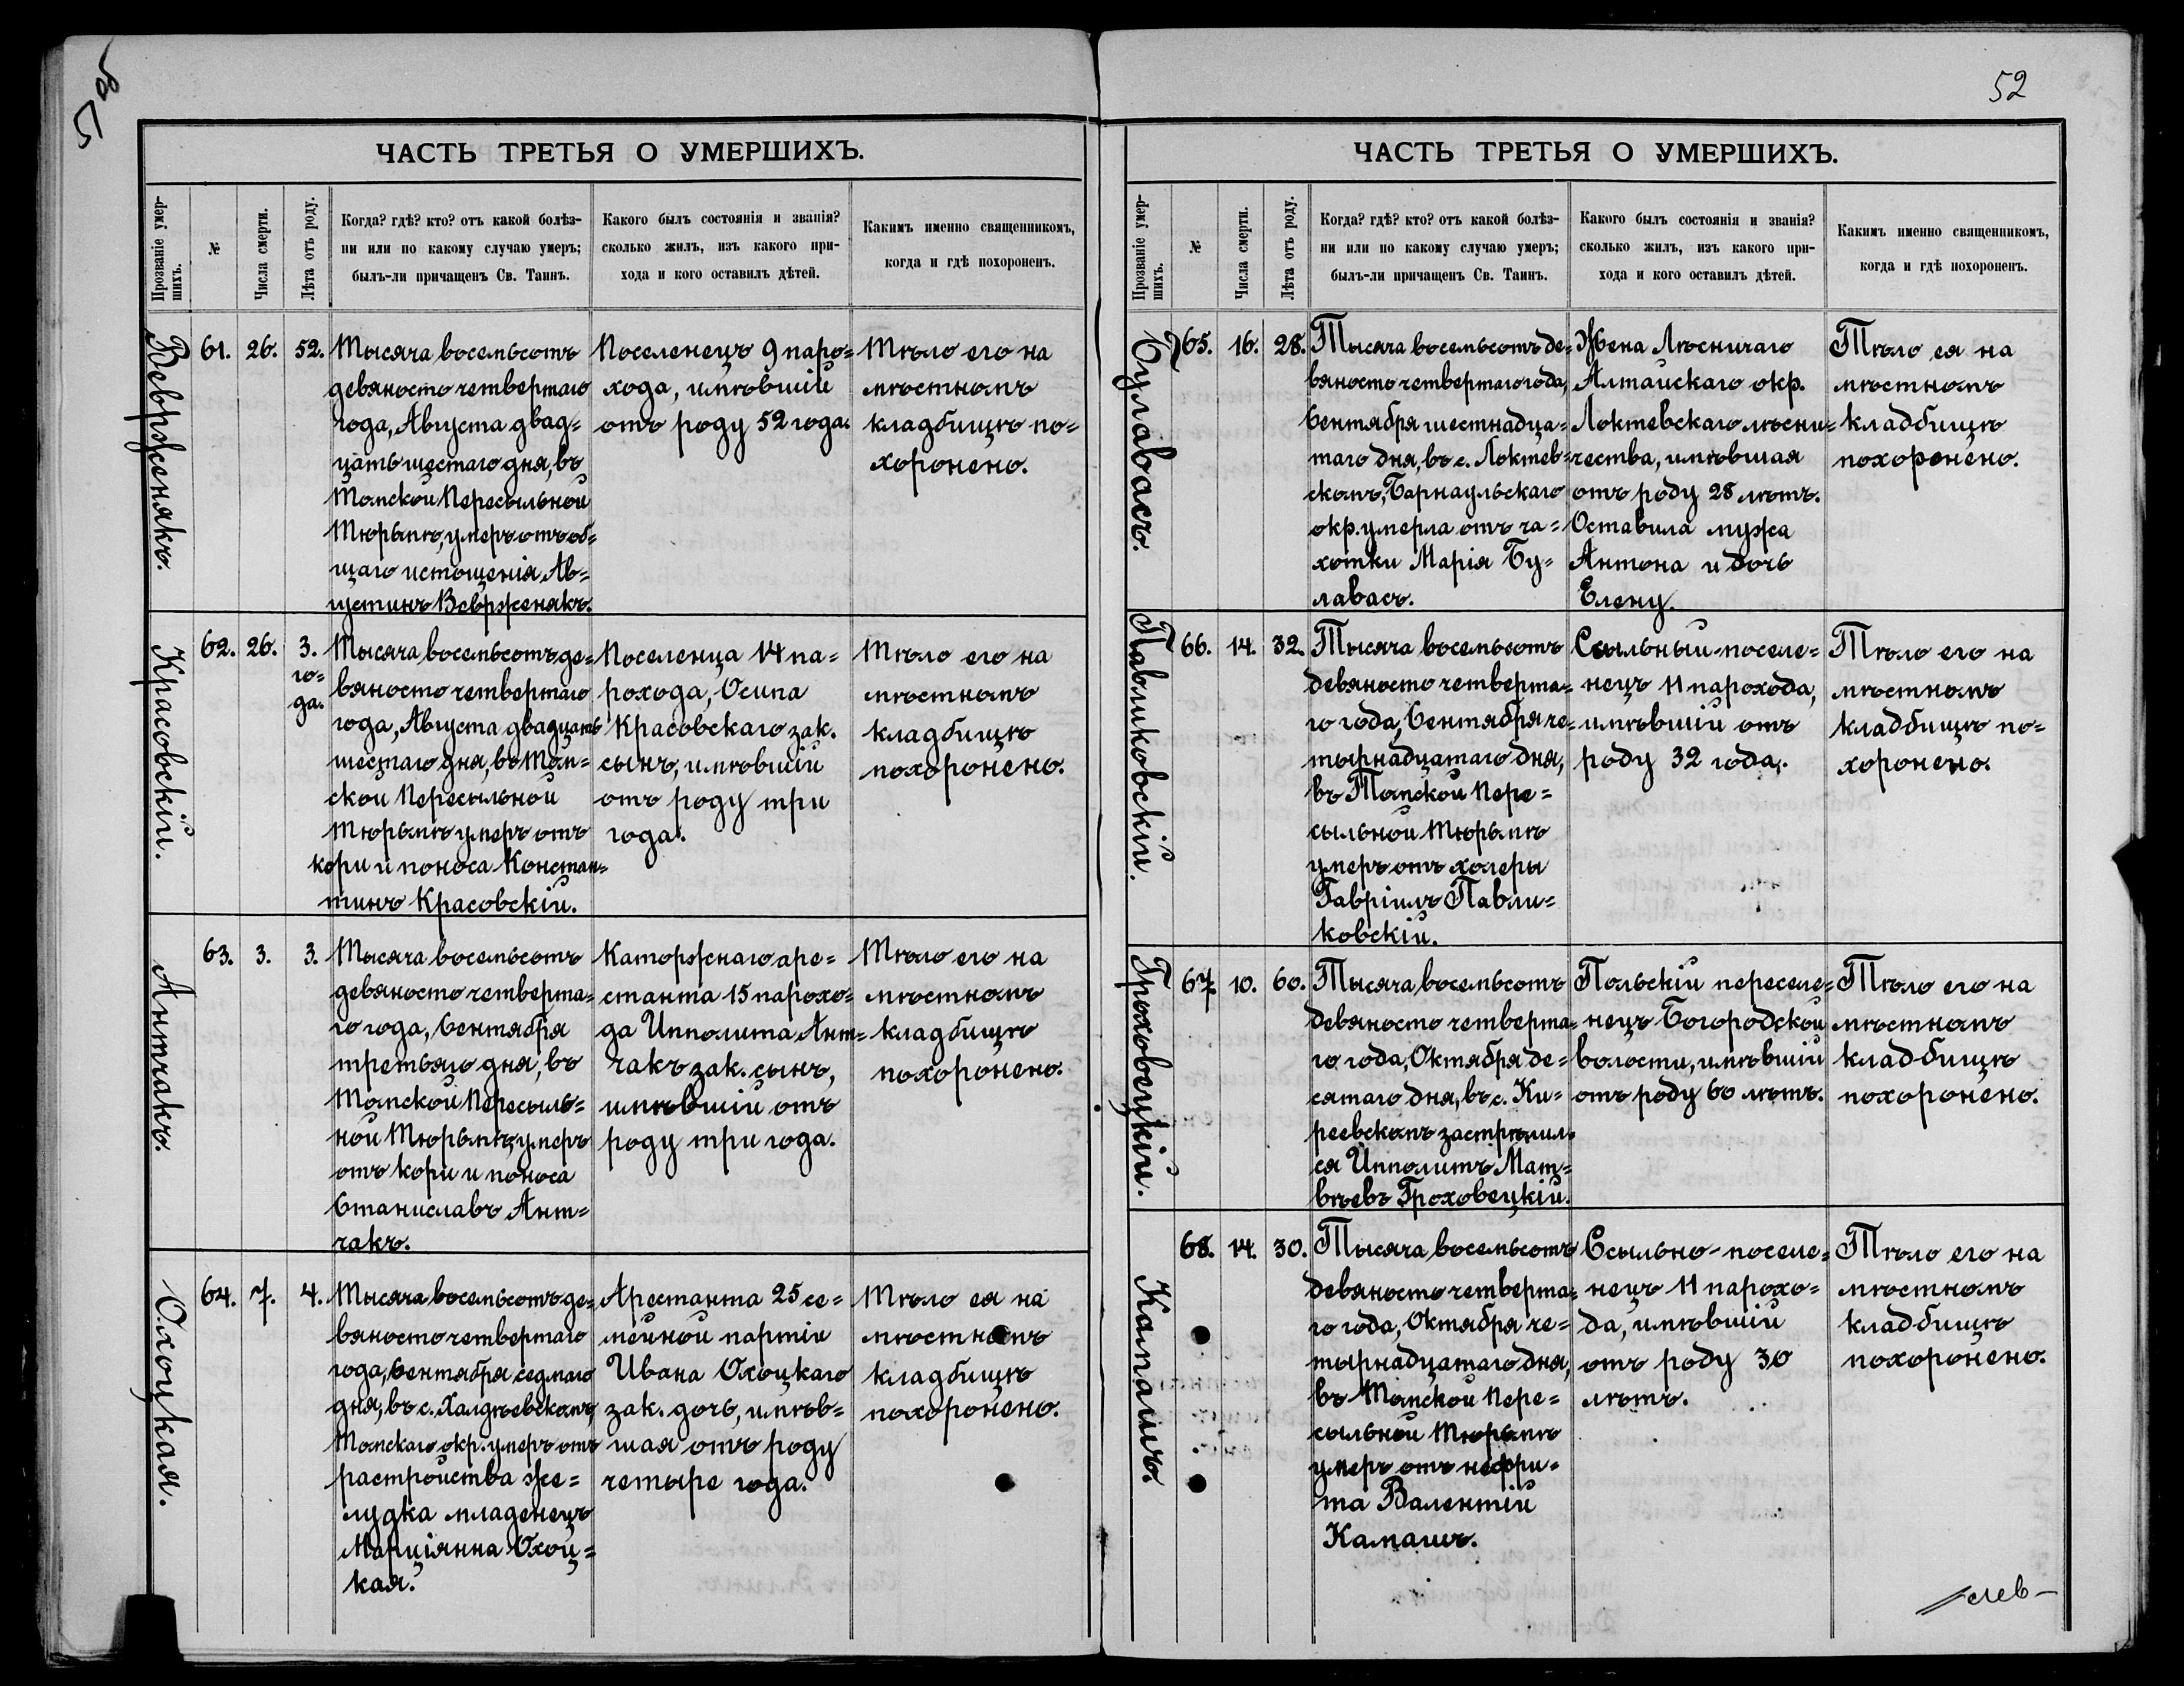 51 об
ЧАСТЬ ТРЕТЬЯ О УМЕРШИХЪ.
Прозваніе умер-
шихъ.
№
Числа смерти.
Лѣта отъ роду.
Когда? гдѣ? кто? отъ какой болѣз-
ни или по какому случаю умеръ;
былъ-ли причащенъ Св. Таинъ.
Какого былъ состоянія и званія?
сколько жилъ, изъ какого при-
хода и кого оставилъ дѣтей.
Какимъ именно священникомъ,
когда и гдѣ похороненъ.
Вевърженякъ.
61.
26.
52.
Тысяча восемьсотъ
девяносто четвертаго
года, Августа двад=
цать шестаго дня, въ
Томской Пересыльной
Тюрьмѣ, умеръ отъ об=
щаго истощенія, Ав=
густинъ Вевърженякъ.
Поселенецъ 9 паро=
хода, имѣвшій
отъ роду 52 года.
Тѣло его на
мѣстномъ
кладбищѣ по=
хоронено.
Красовскій.
62.
26.
3.
го=
да.
Тысяча восемьсотъ де=
вяносто четвертаго
года, Августа двадцать
шестаго дня, въ Том=
ской Пересыльной
Тюрьмѣ умеръ отъ
кори и поноса Констан=
тинъ Красовскій.
Поселенца 14 па=
рохода, Осипа
Красовскаго зак.
сынъ, имѣвшій
отъ роду три
года.
Тѣло его на
мѣстномъ
кладбищѣ
похоронено.
Антчакъ.
63.
3.
3.
Тысяча восемьсотъ
девяносто четверта=
го года, Сентября
третьяго дня, въ
Томской Пересыль=
ной Тюрьмѣ, умеръ
отъ кори и поноса
Станиславъ Ант=
чакъ.
Каторжнаго аре=
станта 15 парохо=
да Ипполита Ант=
чакъ зак. сынъ,
имѣвшій отъ
роду три года.
Тѣло его на
мѣстномъ
кладбищѣ
похоронено.
Охоцкая.
64.
7.
4.
Тысяча восемьсотъ де=
вяносто четвертаго
года, Сентября седмаго
дня, въ с. Халдѣевскомъ,
Томскаго окр. умеръ отъ
растройства же=
лудка младенецъ
Марціянна Охоц=
кая.
Арестанта 25 се=
мейной партіи
Ивана Охоцкаго
зак. дочь, имѣв=
шая отъ роду
четыре года.
Тѣло ея на
мѣстномъ
кладбищѣ
похоронено.
52
ЧАСТЬ ТРЕТЬЯ О УМЕРШИХЪ.
Прозваніе умер-
шихъ.
№
Числа смерти.
Лѣта отъ роду.
Когда? гдѣ? кто? отъ какой болѣз-
ни или по какому случаю умеръ;
былъ-ли причащенъ Св. Таинъ.
Какого былъ состоянія и званія?
сколько жилъ, изъ какого при-
хода и кого оставилъ дѣтей.
Какимъ именно священникомъ,
когда и гдѣ похороненъ.
Булавасъ.
65.
16.
28.
Тысяча восемьсотъ де=
вяносто четвертаго года,
Сентября шестнадца=
таго дня, въ с. Локтев=
скомъ, Барнаульскаго
окр. умерла отъ ча=
хотки Марія Бу=
лавасъ.
Жена Лѣсничаго
Алтайскаго окр.
Локтевскаго лѣсни=
чества, имѣвшая
отъ роду 28 лѣтъ.
Оставила мужа
Антона и дочь
Елену.
Тѣло ея на
мѣстномъ
кладбищѣ
похоронено.
Павликовскій.
66.
14.
32.
Тысяча восемьсотъ
девяносто четверта=
го года, Сентября че=
тырнадцатаго дня,
въ Томской Пере=
сыльной Тюрьмѣ
умеръ отъ холеры
Гавріилъ Павли=
ковскій.
Ссыльный-поселе=
нецъ 11 парохода,
имѣвшій отъ
роду 32 года.
Тѣло его на
мѣстномъ
кладбищѣ по=
хоронено.
Гроховецкій.
67.
10.
60.
Тысяча восемьсотъ
девяносто четверта=
го года, Октября де=
сятаго дня, въ с. Ки=
реевскомъ застрѣлил=
ся Ипполитъ Мат=
вѣевъ Гроховецкій.
Польскій переселе=
нецъ Богородской
волости, имѣвшій
отъ роду 60 лѣтъ.
Тѣло его на
мѣстномъ
кладбищѣ
похоронено.
Капашъ.
68.
14.
30.
Тысяча восемьсотъ
девяносто четверта=
го года, Октября че=
тырнадцатаго дня,
въ Томской Пере=
сыльной Тюрьмѣ
умеръ отъ нефри=
та Валентій
Капашъ.
Ссыльно-поселе=
нецъ 11 парохо=
да, имѣвшій
отъ роду 30
лѣтъ.
Тѣло его на
мѣстномъ
кладбищѣ
похоронено.